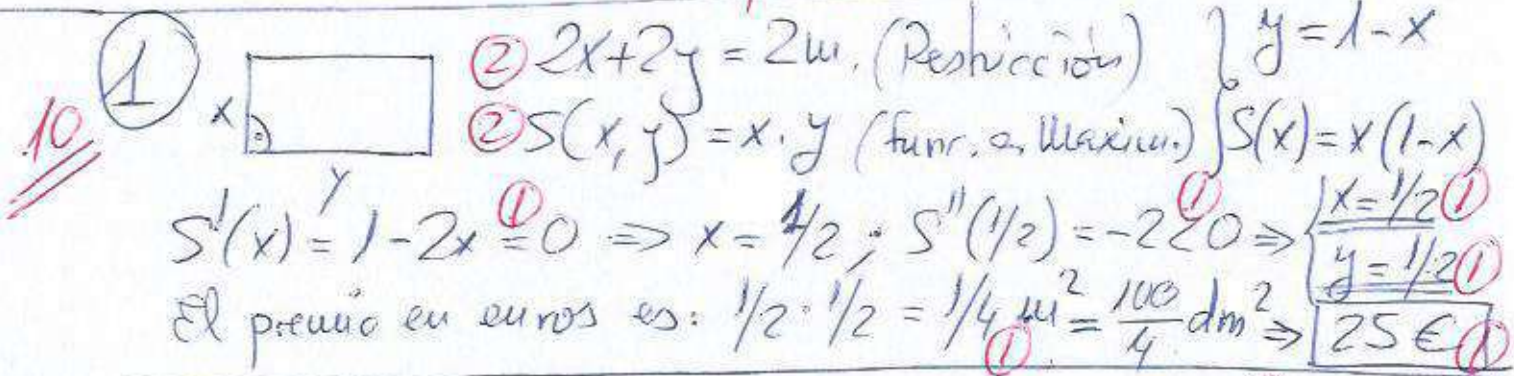 ① ② 2x+2y = 2m. (Restricción) } y = 1-x
10 x ② S(x,y) = x·y (func. a Maxim.) } S(x) = x(1-x)
y
S'(x) = 1-2x = 0 ① ⇒ x = 1/2 ; S''(1/2) = -2<0 ① ⇒ { x = 1/2 ①
y = 1/2 ①
El premio en euros es: 1/2 · 1/2 = 1/4 m² ① = 100/4 dm² ⇒ 25 € ①